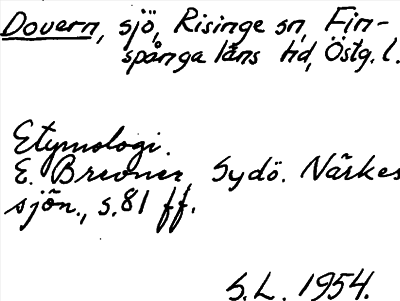 Dovern, sjö, Risinge sn, Fin-
spånga läns hd, Östg. l.
Etymologi.
E. Brevner, Sydö. Närkes
sjön., s. 81 ff.
S.L. 1954.